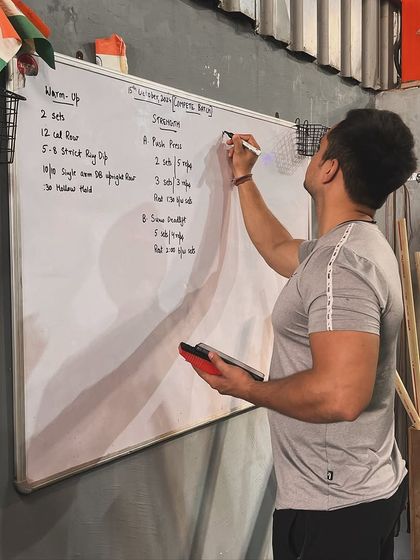 15th October, 2024 [COMPETE BATCH]
Warm-Up
2 sets
12 Cal Row
5-8 Strict Ring Dip
10/10 Single arm DB upright Row
:30 Hollow Hold
STRENGTH
A. Push Press
2 sets | 5 reps
3 sets | 3 reps
Rest 1:30 b/w sets
B. Sumo Deadlift
5 sets | 4 reps
Rest 2:00 b/w sets